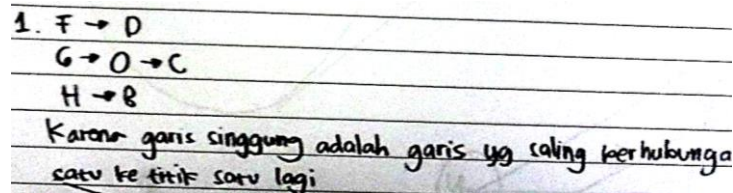 1. F → D
G → O → C
H → B
Karena garis singgung adalah garis yg saling berhubunga
satu ke titik satu lagi